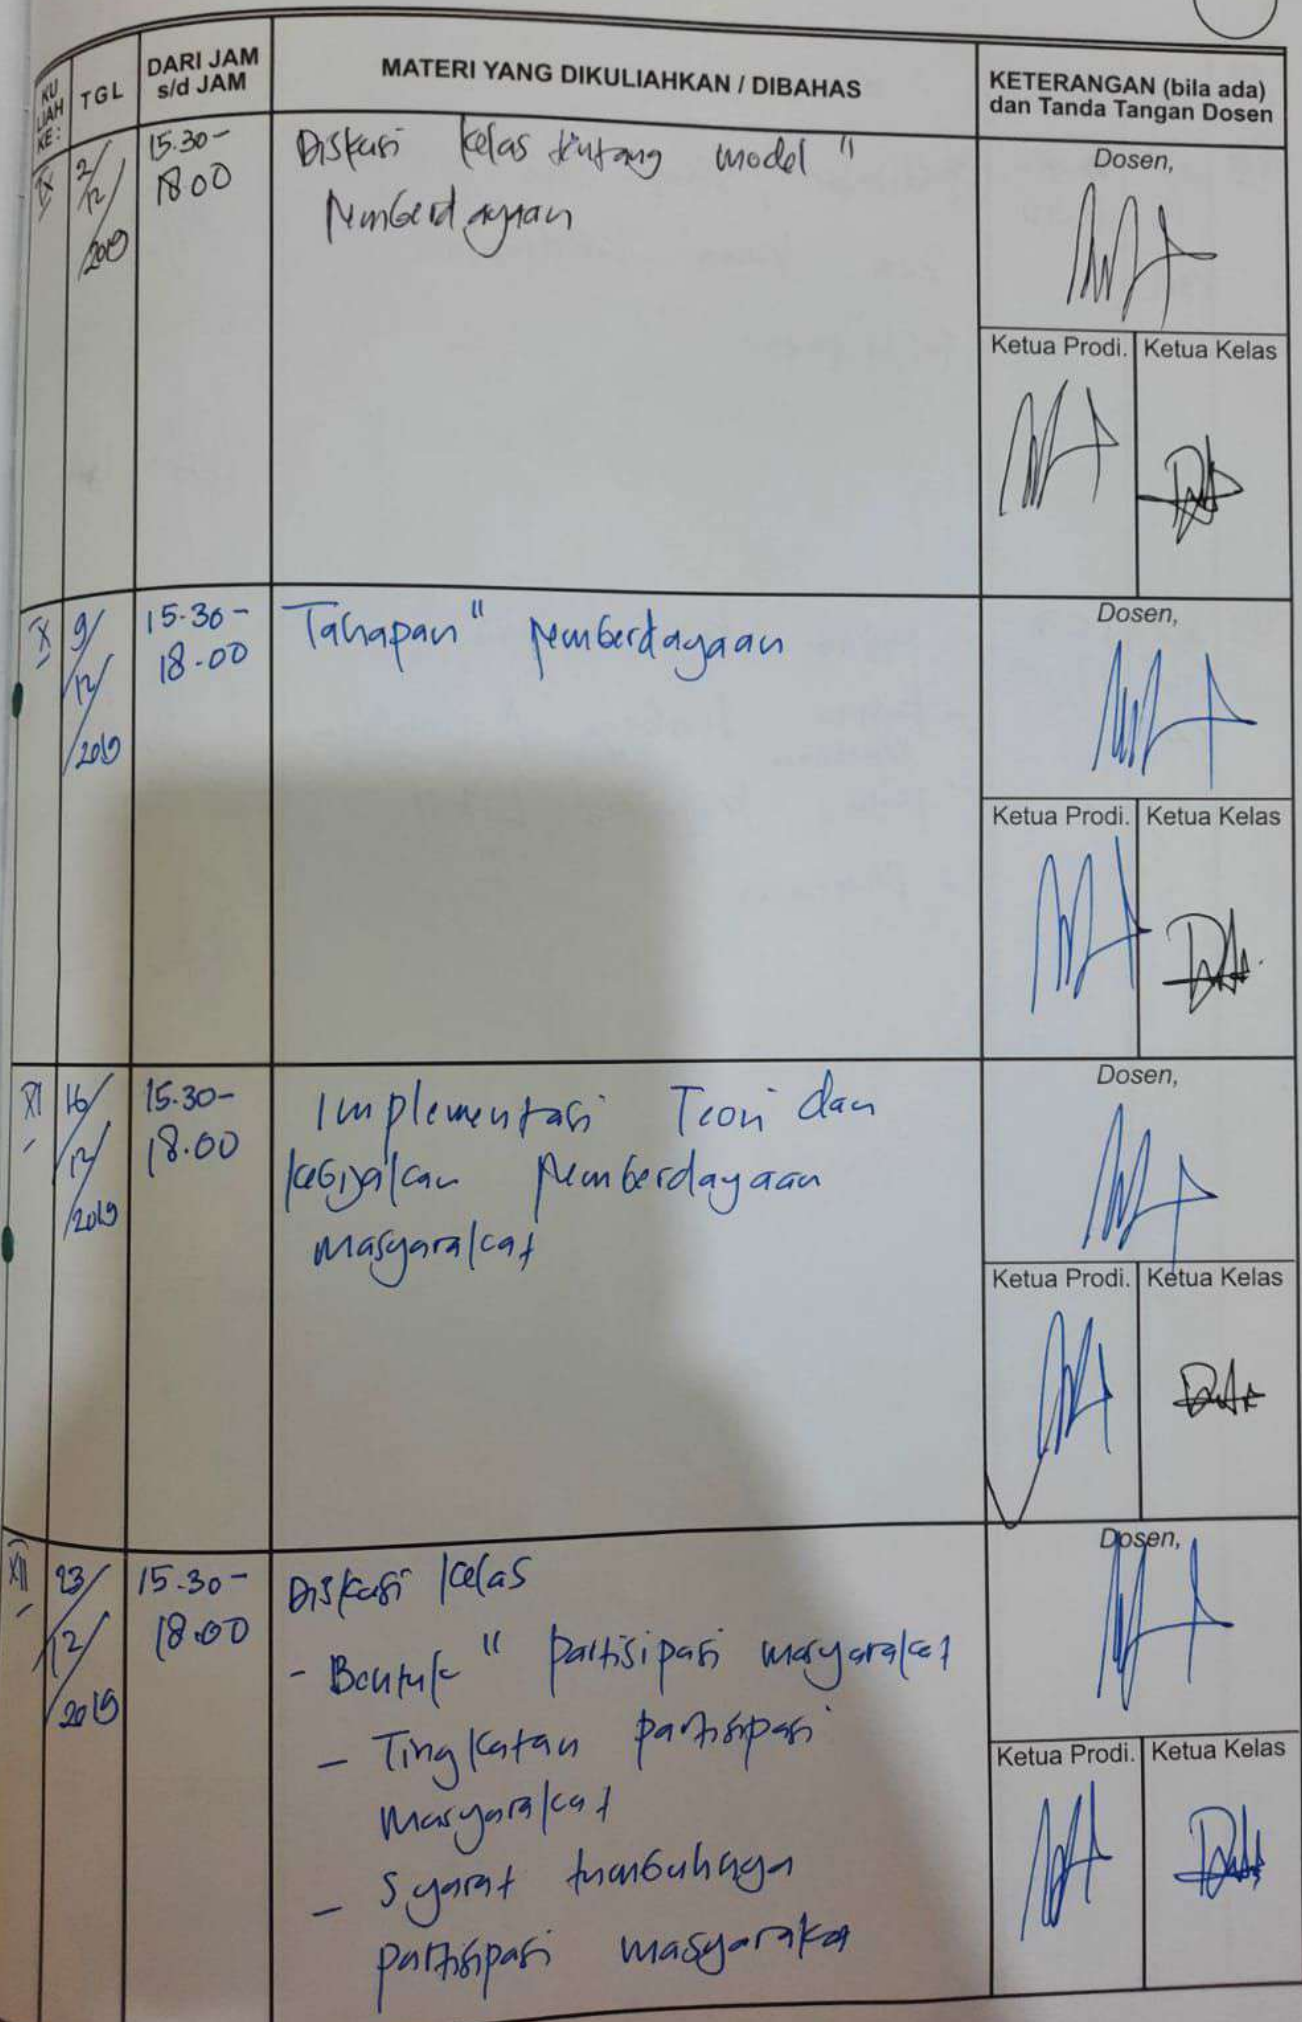 KU LIAH KE :
TGL
DARI JAM
s/d JAM
MATERI YANG DIKULIAHKAN / DIBAHAS
KETERANGAN (bila ada)
dan Tanda Tangan Dosen
IX
2/12/2019
15.30 -
18 00
Diskusi kelas tentang model "
pemberdayaan
Dosen,
Ketua Prodi.
Ketua Kelas
X
9/12/2019
15.30 -
18.00
Tahapan " pemberdayaan
Dosen,
Ketua Prodi.
Ketua Kelas
XI
16/12/2019
15.30 -
18.00
Implementasi Teori dan
kebijakan pemberdayaan
masyarakat
Dosen,
Ketua Prodi.
Ketua Kelas
XII
23/12/2019
15.30 -
18.00
Diskusi kelas
- Bentuk " partisipasi masyarakat
- Tingkatan partisipasi
masyarakat
- Syarat tumbuhnya
partisipasi masyarakat
Dosen,
Ketua Prodi.
Ketua Kelas